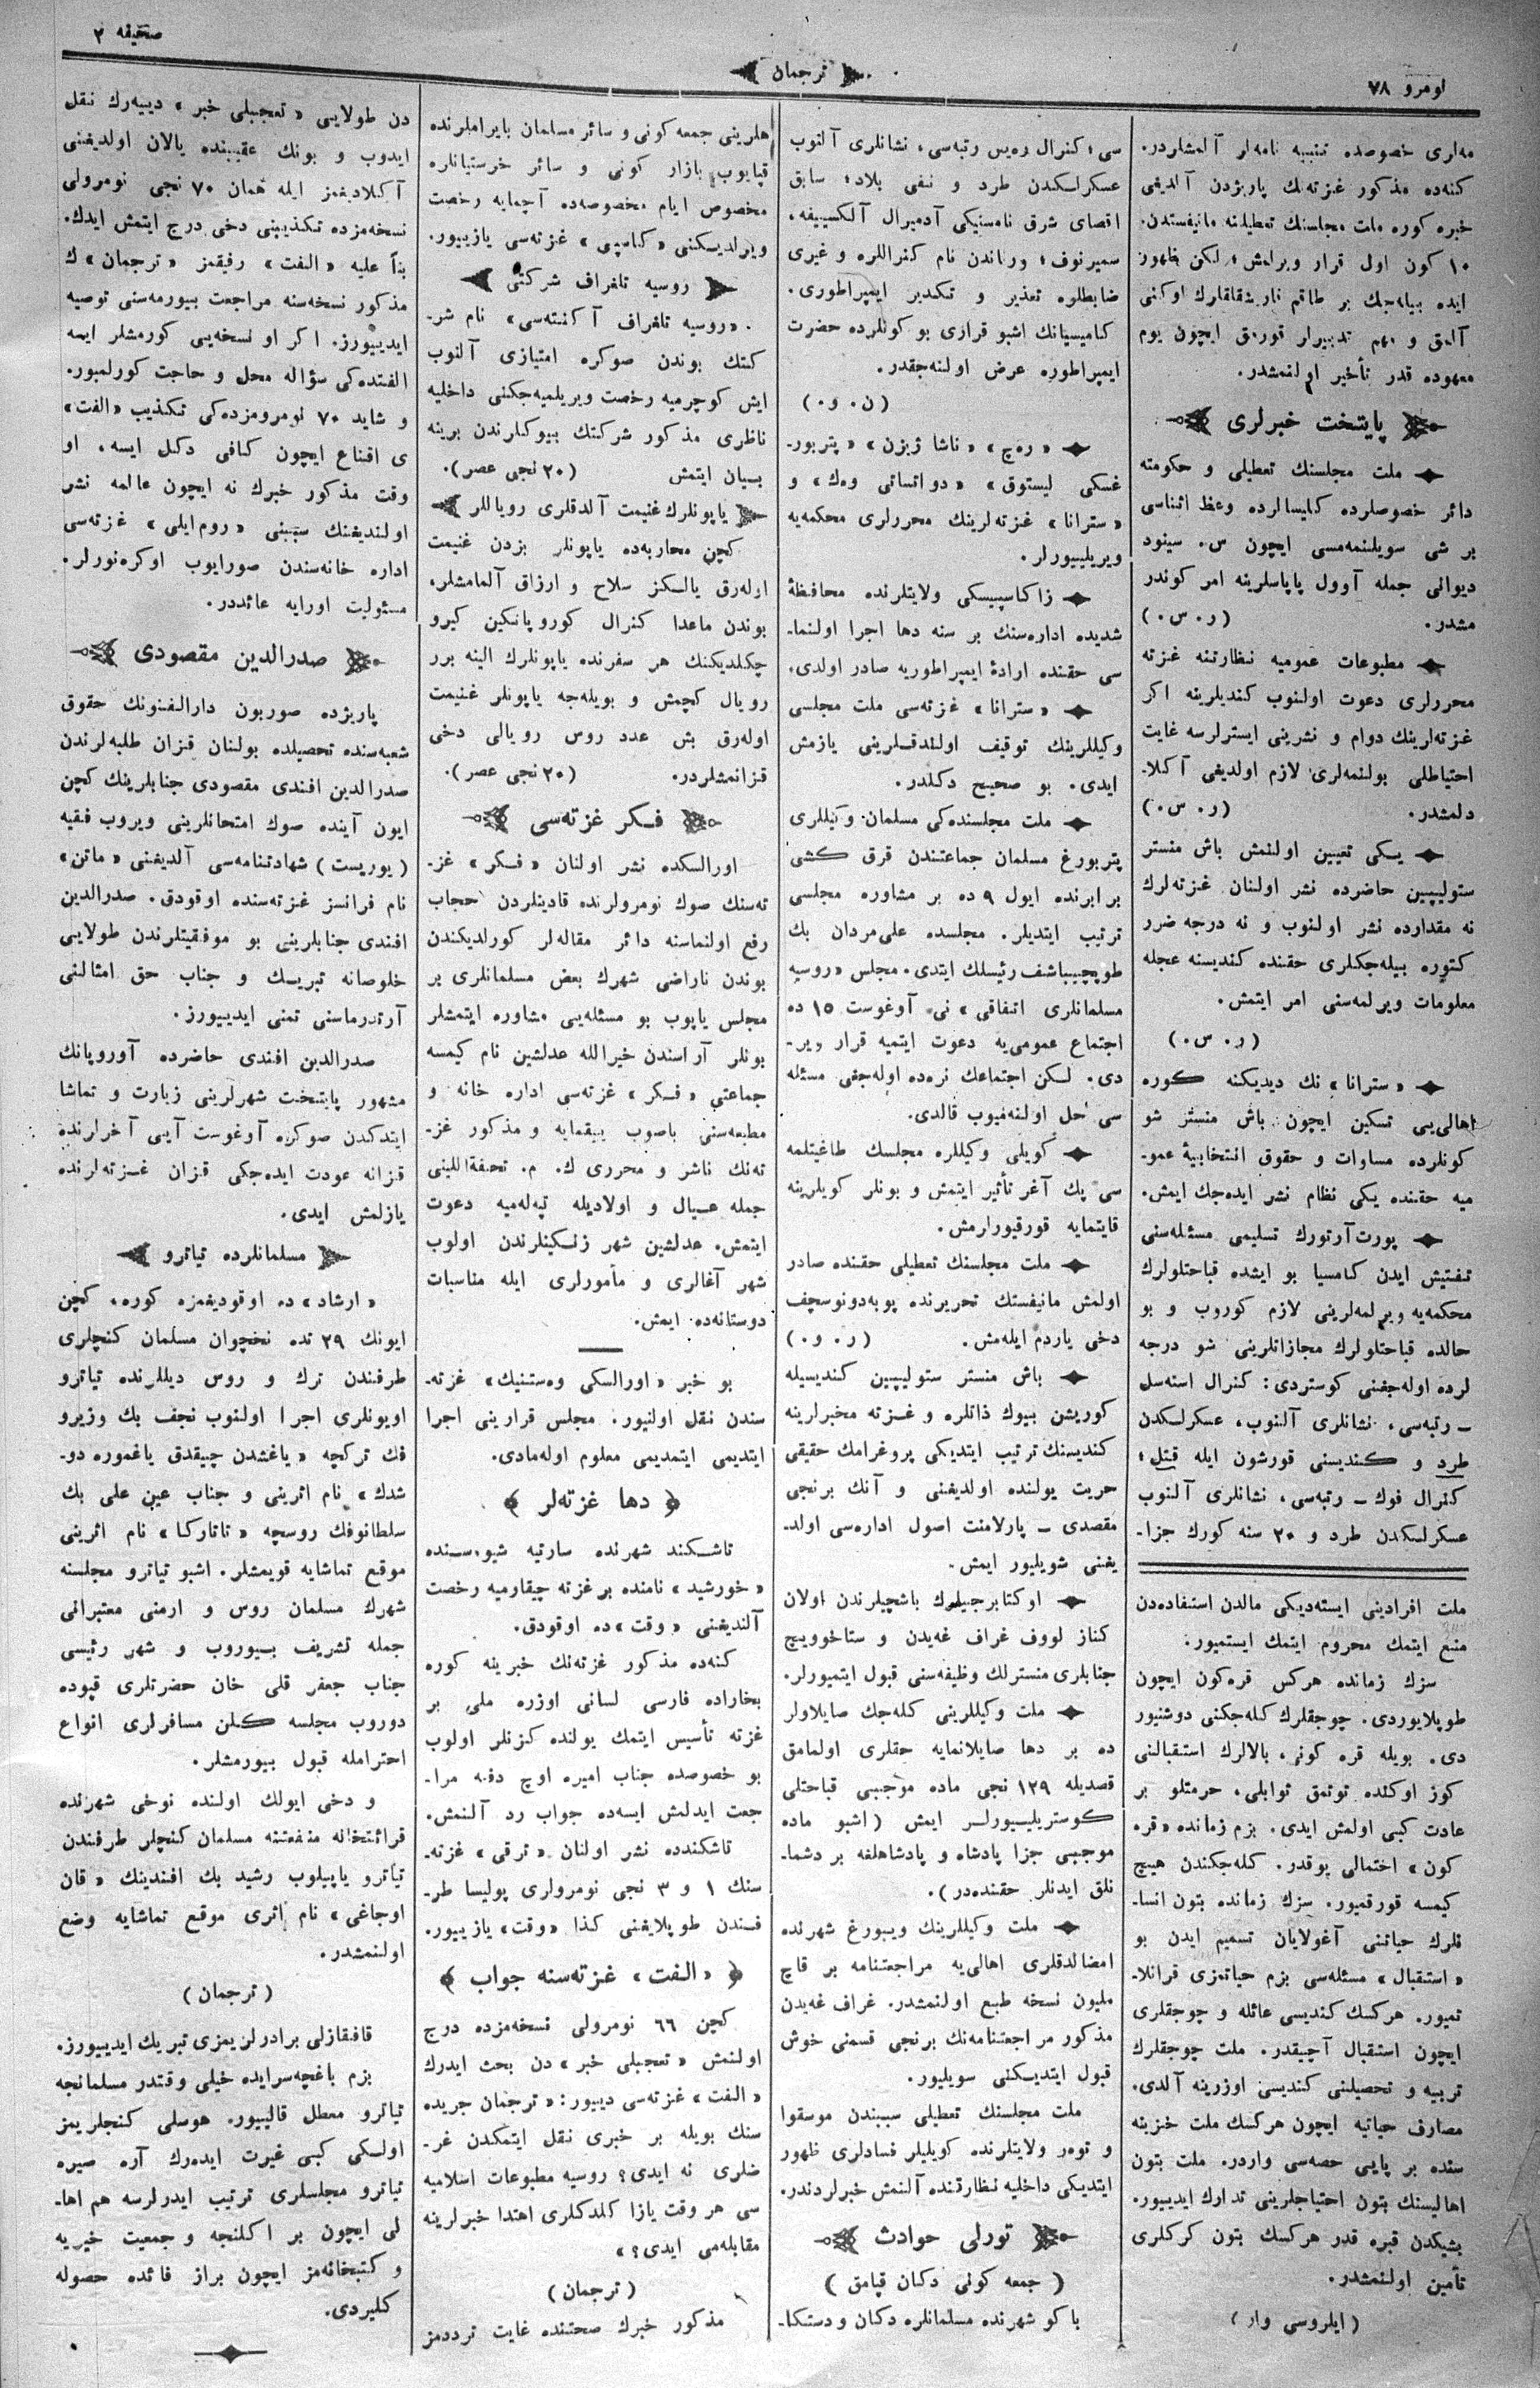 صحیفه ۲
ترجمان
نومرو ۷۸
مه‌لری خصوصده تنبیه نامه‌لر آلمشلردر.
کنه‌ده مذکور غزته‌نك پاریژدن آلدیغی
خبره کوره ملت مجلسنك تعطیلنه مانیفستدن.
۱۰ کون اول قرار ویرلمش؛ لکن ظهور
ایده بیله‌جك بر طاقم نارشقلقلرك اوکنی
آلمق و مهم تدبیرلر قورمق ایچون یوم
معهوده قدر تأخیر اولنمشدر.
پایتخت خبرلری
ملت مجلسنك تعطیلی و حکومته
دائر خصوصلرده کلیسالرده وعظ اثناسی
بر شی سویلنمه‌مسی ایچون س. سینود
دیوانی جمله آوول پاپاسلرینه امر کوندر
مشدر. (ر. س.)
مطبوعات عمومیه نظارتنه غزته
محررلری دعوت اولنوب کندیلرینه اکر
غزته‌لرینك دوام و نشرینی ایسترلرسه غایت
احتیاطلی بولنمه‌لری لازم اولدیغی آکلا-
دلمشدر. (ر. س.)
یکی تعیین اولنمش باش منستر
ستولیپین حاضرده نشر اولنان غزته‌لرك
نه مقدارده نشر اولنوب و نه درجه ضرر
کتوره بیله‌جکلری حقنده کندیسنه عجله
معلومات ویرلمه‌سنی امر ایتمش.
(ر. س.)
«سترانا» نك دیدیکنه کوره
اهالی‌یی تسکین ایچون باش منستر شو
کونلرده مساوات و حقوق انتخابیهٔ عمو-
میه حقنده یکی نظام نشر ایده‌جك ایمش.
پورت‌آرتورك تسلیمی مسئله‌سنی
تفتیش ایدن کامسیا بو ایشده قباحتلولرك
محکمه‌یه ویرلمه‌لرینی لازم کوروب و بو
حالده قباحتلولرك مجازاتلرینی شو درجه
لرده اوله‌جغنی کوستردی: کنرال استه‌سل
ـ رتبه‌سی، نشانلری آلنوب، عسکرلکدن
طرد و کندیسنی قورشون ایله قتل؛
کنرال فوك ـ رتبه‌سی، نشانلری آلنوب
عسکرلکدن طرد و ۲۰ سنه کورك جزا-
ملت افرادینی ایسته‌دیکی مالدن استفاده‌دن
منع ایتمك محروم ایتمك ایستمیور.
سزك زمانده هرکس قره‌کون ایچون
طوپلایوردی. چوجقلرك کله‌جکنی دوشنیور
دی. بویله قره کونی، بالالرك استقبالنی
کوز اوکنده توتمق ثوابلی، حرمتلو بر
عادت کبی اولمش ایدی. بزم زمانده «قره
کون» احتمالی یوقدر. کله‌جکندن هیچ
کیمسه قورقمیور. سزك زمانده بتون انسا-
نلرك حیاتنی آغولایان تسمیم ایدن بو
«استقبال» مسئله‌سی بزم حیاتمزی قرانلا-
تمیور. هرکسك کندیسی عائله و چوجقلری
ایچون استقبال آچیقدر. ملت چوجقلرك
تربیه و تحصیلنی کندیسی اوزرینه آلدی.
مصارف حیاتیه ایچون هرکسك ملت خزینه
سنده بر پایی حصه‌سی واردر. ملت بتون
اهالیسنك بتون احتیاجلرینی تدارك ایدییور.
بشیکدن قبره قدر هرکسك بتون کرکلری
تأمین اولنمشدر.
(ایلروسی وار)
سی؛ کنرال ره‌یس رتبه‌سی، نشانلری آلنوب
عسکرلکدن طرد و نفی بلاد؛ سابق
اقصای شرق نامستیکی آدمیرال آلکسییفه،
سمیرنوف؛ وراندن نام کنراللره و غیری
ضابطلره تعذیر و تکدیر ایمپراطوری.
کامیسیانك اشبو قراری بو کونلرده حضرت
ایمپراطوره عرض اولنه‌جقدر.
(ن. و.)
«ره‌چ» «ناشا ژیزن» «پتربور-
غسکی لیستوق» «دواتساتی وه‌ك» و
«سترانا» غزته‌لرینك محررلری محکمه‌یه
ویریلییورلر.
زاکاسپیسکی ولایتلرنده محافظهٔ
شدیده اداره‌سنك بر سنه دها اجرا اولنما-
سی حقنده ارادهٔ ایمپراطوریه صادر اولدی.
«سترانا» غزته‌سی ملت مجلسی
وکیللرینك توقیف اولندقلرینی یازمش
ایدی. بو صحیح دکلدر.
ملت مجلسنده‌کی مسلمان وکیللری
پتربورغ مسلمان جماعتندن قرق کشی
برابرنده ایول ۹ ده بر مشاوره مجلسی
ترتیب ایتدیلر. مجلسده علی‌مردان بك
طوپچیباشف رئیسلك ایتدی. مجلس «روسیه
مسلمانلری اتفاقی» نی آوغوست ۱۵ ده
اجتماع عمومی‌یه دعوت ایتمیه قرار ویر-
دی. لکن اجتماعك نره‌ده اوله‌جغی مسئله
سی حل اولنه‌میوب قالدی.
کویلی وکیللره مجلسك طاغیتلمه
سی پك آغر تأثیر ایتمش و بونلر کویلرینه
قایتمایه قورقیورارمش.
ملت مجلسنك تعطیلی حقنده صادر
اولمش مانیفستك تحریرنده پوبه‌دونوسچف
دخی یاردم ایله‌مش. (ر. و.)
باش منستر ستولیپین کندیسیله
کوریشن بیوك ذاتلره و غزته مخبرلرینه
کندیسنك ترتیب ایتدیکی پروغرامك حقیقی
حریت یولنده اولدیغنی و آنك برنجی
مقصدی ـ پارلامنت اصول اداره‌سی اولد-
یغنی شویلیور ایمش.
اوکتابرجیلرك باشچیلرندن اولان
کناز لووف غراف غه‌یدن و ستاخوویچ
جنابلری منسترلك وظیفه‌سنی قبول ایتمیورلر.
ملت وکیللرینی کله‌جك صایلاولر
ده بر دها صایلانمایه حقلری اولمامق
قصدیله ۱۲۹ نجی ماده موجبی قباحتلی
کوستریلییورلر ایمش (اشبو ماده
موجبی جزا پادشاه و پادشاهلغه بر دشما-
نلق ایدنلر حقنده‌در).
ملت وکیللرینك ویبورغ شهرنده
امضالدقلری اهالی‌یه مراجعتنامه بر قاچ
ملیون نسخه طبع اولنمشدر. غراف غه‌یدن
مذکور مراجعتنامه‌نك برنجی قسمنی خوش
قبول ایتدیکنی سویلیور.
ملت مجلسنك تعطیلی سببندن موسقوا
و توه‌ر ولایتلرنده کویلیلر فسادلری ظهور
ایتدیکی داخلیه نظارتنده آلنمش خبرلردندر.
تورلی حوادث
(جمعه کونی دکان قپامق)
باکو شهرنده مسلمانلره دکان ودستکا-
هلرینی جمعه کونی و سائر مسلمان بایراملرنده
قپایوب بازار کونی و سائر خرستیانلره
مخصوص ایام مخصوصه‌ده آچمایه رخصت
ویرلدیکنی «کاسپی» غزته‌سی یازییور.
روسیه تلغراف شرکتی
«روسیه تلغراف آکنته‌سی» نام شر-
کتك بوندن صوکره امتیازی آلنوب
ایش کوچرمیه رخصت ویریلمیه‌جکنی داخلیه
ناظری مذکور شرکتك بیوکلرندن برینه
بیان ایتمش (۲۰ نجی عصر).
یاپونلرك غنیمت آلدقلری رویاللر
کچن محاربه‌ده یاپونلر بزدن غنیمت
اوله‌رق یالکز سلاح و ارزاق آلمامشلر،
بوندن ماعدا کنرال کوروپاتکین کیرو
چکلدیکنك هر سفرنده یاپونلرك الینه برر
رویال کچمش و بویله‌جه یاپونلر غنیمت
اوله‌رق بش عدد روس رویالی دخی
قزانمشلردر. (۲۰ نجی عصر).
فکر غزته‌سی
اورالسکده نشر اولنان «فکر» غز-
ته‌سنك صوك نومرولرنده قادینلردن حجاب
رفع اولنماسنه دائر مقاله‌لر کورلدیکندن
بوندن ناراضی شهرك بعض مسلمانلری بر
مجلس یاپوب بو مسئله‌یی مشاوره ایتمشلر
بونلر آراسندن خیرالله عدلشین نام کیمسه
جماعتی «فکر» غزته‌سی اداره خانه و
مطبعه‌سنی باصوب ییقمایه و مذکور غز-
ته‌نك ناشر و محرری ك. م. تحفة‌اللینی
جمله عیال و اولادیله تپه‌له‌میه دعوت
ایتمش. عدلشین شهر زنکینلرندن اولوب
شهر آغالری و مأمورلری ایله مناسبات
دوستانه‌ده ایمش.
بو خبر «اورالسکی وه‌ستنیك» غزته-
سندن نقل اولنیور. مجلس قرارینی اجرا
ایتدیمی ایتمدیمی معلوم اوله‌مادی.
دها غزته‌لر
تاشکند شهرنده سارتیه شیوه‌سنده
«خورشید» نامنده بر غزته چیقارمیه رخصت
آلندیغنی «وقت» ده اوقودق.
کنه‌ده مذکور غزته‌نك خبرینه کوره
بخاراده فارسی لسانی اوزره ملی بر
غزته تأسیس ایتمك یولنده کزنلر اولوب
بو خصوصده جناب امیره اوچ دفعه مرا-
جعت ایدلمش ایسه‌ده جواب رد آلنمش.
تاشکندده نشر اولنان «ترقی» غزته-
سنك ۱ و ۳ نجی نومرولری پولیسا طر-
فندن طوپلایغنی کذا «وقت» یازییور.
«الفت» غزته‌سنه جواب
کچن ٦٦ نومرولی نسخه‌مزده درج
اولنمش «تعجبلی خبر» دن بحث ایدرك
«الفت» غزته‌سی دییور: «ترجمان جریده
سنك بویله بر خبری نقل ایتمکدن غر-
ضلری نه ایدی؟ روسیه مطبوعات اسلامیه
سی هر وقت یازا کلدکلری اهتدا خبرلرینه
مقابله‌می ایدی؟»
(ترجمان)
مذکور خبرك صحتنده غایت ترددمز
دن طولایی «تعجبلی خبر» دییه‌رك نقل
ایدوب و بونك عقیبنده یالان اولدیغنی
آکلادیغمز ایله همان ۷۰ نجی نومرولی
نسخه‌مزده تکذیبنی دخی درج ایتمش ایدك.
بناً علیه «الفت» رفیقمز «ترجمان» ك
مذکور نسخه‌سنه مراجعت بیورمه‌سنی توصیه
ایدییورز. اکر او نسخه‌یی کورمشلر ایسه
الفتده‌کی سؤاله محل و حاجت کورلمیور.
و شاید ۷۰ نومرومزده‌کی تکذیب «الفت»
ی اقناع ایچون کافی دکل ایسه، او
وقت مذکور خبرك نه ایچون عالمه نشر
اولندیغنك سببنی «روم‌ایلی» غزته‌سی
اداره خانه‌سندن صورایوب اوکره‌نورلر.
مسئولیت اورایه عائددر.
صدرالدین مقصودی
پاریژده صوربون دارالفنونك حقوق
شعبه‌سنده تحصیلده بولنان قزان طلبه‌لرندن
صدرالدین افندی مقصودی جنابلرینك کچن
ایون آینده صوك امتحانلرینی ویروب فقیه
(یوریست) شهادتنامه‌سی آلدیغنی «ماتن»
نام فرانسز غزته‌سنده اوقودق. صدرالدین
افندی جنابلرینی بو موفقیتلرندن طولایی
خلوصانه تبریك و جناب حق امثالنی
آرتدرماسنی تمنی ایدییورز.
صدرالدین افندی حاضرده آوروپانك
مشهور پایتخت شهرلرینی زیارت و تماشا
ایتدکدن صوکره آوغوست آیی آخرلرنده
قزانه عودت ایده‌جکی قزان غزته‌لرنده
یازلمش ایدی.
مسلمانلرده تیاترو
«ارشاد» ده اوقودیغمزه کوره، کچن
ایونك ۲۹ نده نخچوان مسلمان کنچلری
طرفندن ترك و روس دیللرنده تیاترو
اویونلری اجرا اولنوب نجف بك وزیرو
فك ترکچه «یاغشدن چیقدق یاغموره دو-
شدك» نام اثرینی و جناب عین علی بك
سلطانوفك روسچه «تاتارکا» نام اثرینی
موقع تماشایه قویمشلر. اشبو تیاترو مجلسنه
شهرك مسلمان روس و ارمنی معتبرانی
جمله تشریف بیوروب و شهر رئیسی
جناب جعفر قلی خان حضرتلری قپوده
دوروب مجلسه کلن مسافرلری انواع
احترامله قبول بیورمشلر.
و دخی ایولك اولنده نوخی شهرنده
قرائتخانه منفعتنه مسلمان کنچلر طرفندن
تیاترو یاپیلوب رشید بك افندینك «قان
اوجاغی» نام اثری موقع تماشایه وضع
اولنمشدر.
(ترجمان)
قافقازلی برادرلریمزی تبریك ایدییورز.
بزم باغچه‌سرایده خیلی وقتدر مسلمانجه
تیاترو معطل قالییور. هوسلی کنجلریمز
اولکی کبی غیرت ایده‌رك آره صیره
تیاترو مجلسلری ترتیب ایدرلرسه هم اها-
لی ایچون بر اکلنجه و جمعیت خیریه
و کتبخانه‌مز ایچون براز فائده حصوله
کلیردی.